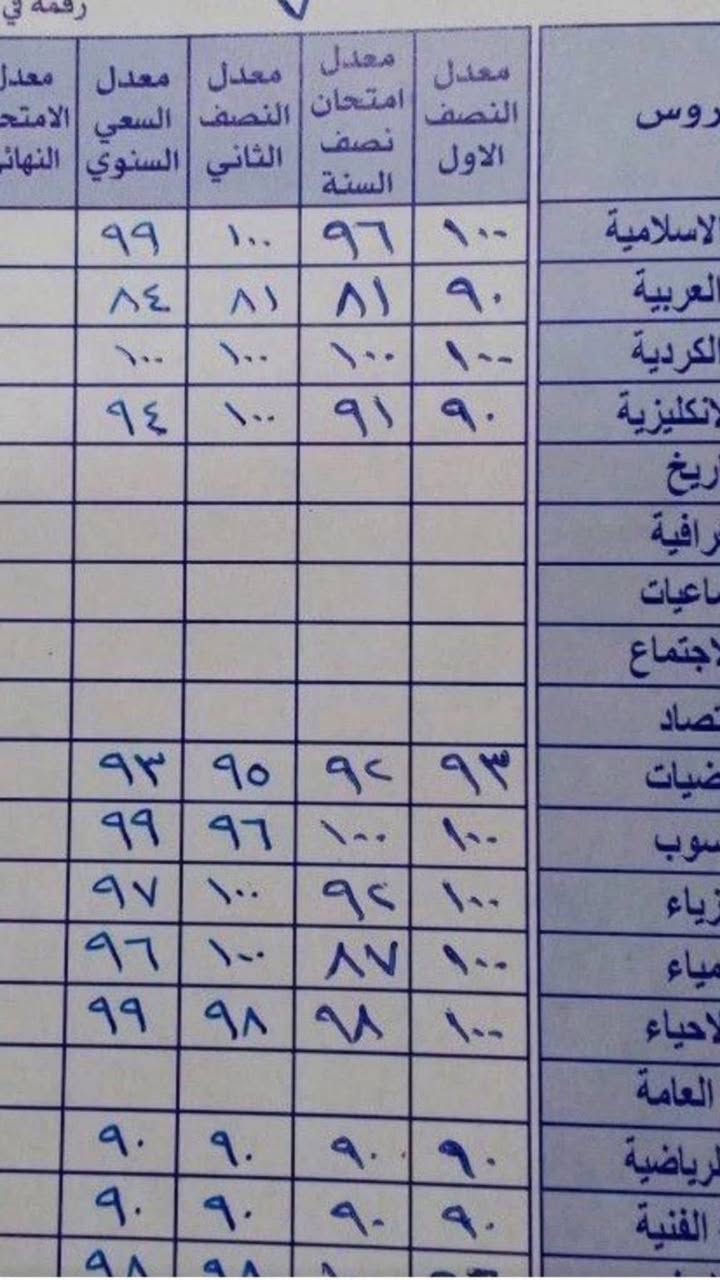 رقمه في
روس | معدل النصف الاول | معدل امتحان نصف السنة | معدل النصف الثاني | معدل السعي السنوي | معدل الامتح النهائ
الاسلامية | ١٠٠ | ٩٦ | ١٠٠ | ٩٩
العربية | ٩٠ | ٨١ | ٨١ | ٨٤
الكردية | ١٠٠ | ١٠٠ | ١٠٠ | ١٠٠
الانكليزية | ٩٠ | ٩١ | ١٠٠ | ٩٤
اريخ
رافية
ماعيات
الاجتماع
تصاد
ضيات | ٩٣ | ٩٢ | ٩٥ | ٩٣
سوب | ١٠٠ | ١٠٠ | ٩٦ | ٩٩
زياء | ١٠٠ | ٩٢ | ١٠٠ | ٩٧
مياء | ١٠٠ | ٨٧ | ١٠٠ | ٩٦
لاحياء | ١٠٠ | ٩٨ | ٩٨ | ٩٩
العامة
لرياضية | ٩٠ | ٩٠ | ٩٠ | ٩٠
الفنية | ٩٠ | ٩٠ | ٩٠ | ٩٠
٩٨ | ٩٨